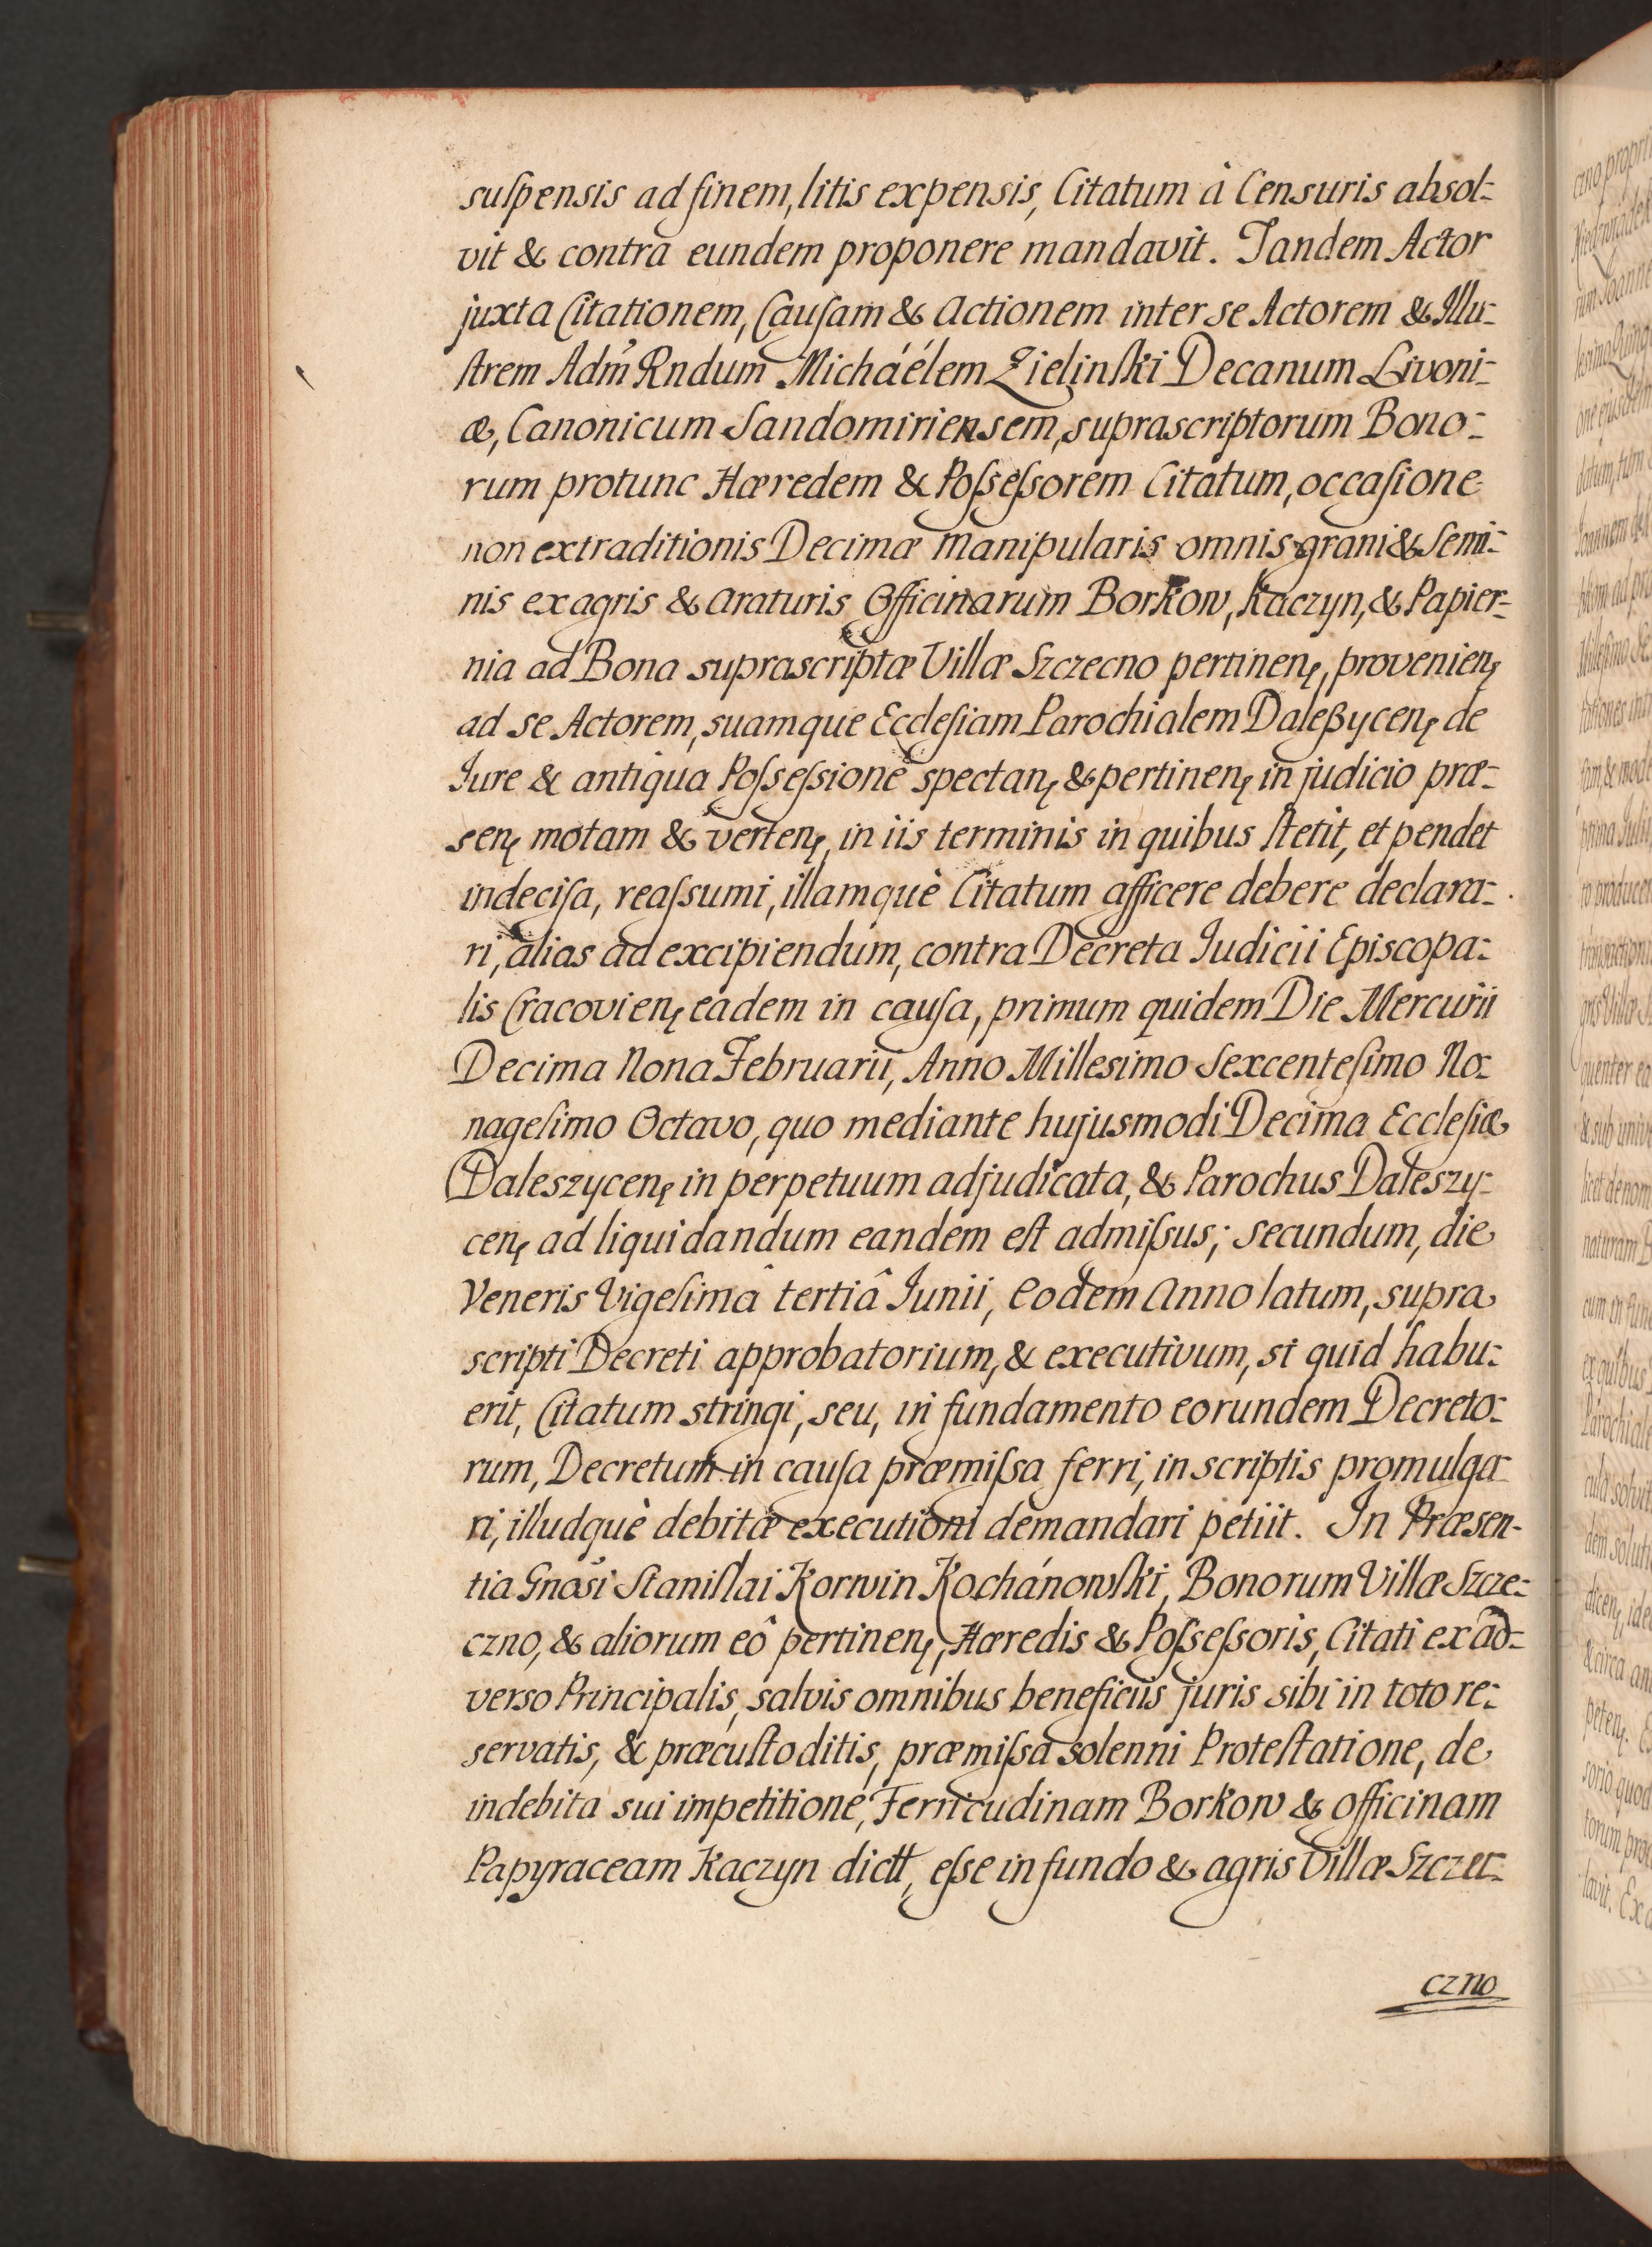 suſpensis ad finem, litis expensis, Citatum à Censuris absol-
vit & contra eundem proponere mandavit. Tandem Actor
juxta Citationem, Cauſam & Actionem inter se Actorem & Illu-
ſtrem Adm̃ Rndum Micháélem Zielinſki Decanum Livoni-
æ, Canonicum Sandomiriensem, suprascriptorum Bono-
rum protunc Hæredem & Poſseſsorem Citatum, occaſione
non extraditionis Decimæ manipularis omnis grani & Semi-
nis ex agris & araturis Officinarum Borkow, Kaczyn, & Papier-
nia ad Bona suprascriptæ Villæ Szczecno pertinenę, provenienę
ad se Actorem, suamque Eccleſiam Parochialem Daleßycenę de
Jure & antiqua Poſseſsione spectanę & pertinenę in judicio præ-
senę motam & vertenę, in iis terminis in quibus ſtetit, et pendet
indeciſa, reaſsumi, illamquè Citatum afficere debere declara-
ri, alias ad excipiendum, contra Decreta Judicii Episcopa-
lis Cracovienę eadem in cauſa, primum quidem Die Mercurii
Decima Nona Februarii, Anno Millesimo Sexcenteſimo No-
nageſimo Octavo, quo mediante hujusmodi Decima Eccleſiæ
Daleszycenę in perpetuum adjudicata, & Parochus Daleszy-
cenę ad liquidandum eandem eſt admiſsus; secundum, die
Veneris Vigeſimâ tertiâ Junii, eodem Anno latum, supra
scripti Decreti approbatorium, & executivum, si quid habu-
erit, Citatum stringi, seu, in fundamento eorundem Decreto-
rum, Decretum in cauſa præmiſsa ferri, in scriptis promulga-
ri, illudquè debitæ executioni demandari petiit. In Præsen-
tia Gnosi Staniſlai Korwin Kochánowſki, Bonorum Villæ Szcze-
czno, & aliorum eô pertinenę, Hæredis & Poſseſsoris, Citati ex ad-
verso Principalis, salvis omnibus beneficiis juris sibi in toto re-
servatis, & præcuſtoditis, præmiſsa solenni Proteſtatione, de
indebita sui impetitione, Ferricudinam Borkow & officinam
Papyraceam Kaczyn dictt, eſse in fundo & agris Villæ Szcze-
czno